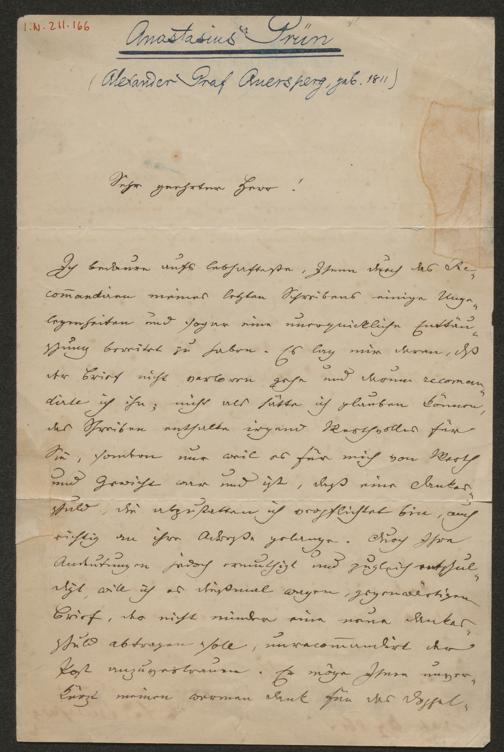 I.N. 211.166
Anastasius Grün
(Alexander Graf Auersperg, geb. 1811)
Sehr geehrter Herr !
Ich bedaure aufs lebhafteste, Ihnen durch das Re-
com̅andiren meines letzten Schreibens einige Unge-
legenheiten und sogar eine unerquickliche Enttäu-
schung bereitet zu haben. Es lag mir daran, daß
der Brief nicht verloren gehe und darum recoman-
dirte ich ihn; nicht als hätte ich glauben können,
das Schreiben enthalte irgend Werthvolles für
Sie, sondern nur weil es für mich von Werth
und Gewicht war und ist, daß eine Dankes-
schuld, die abzustatten ich verpflichtet bin, auch
richtig an ihre Adresse gelange. Durch Ihre
Andeutungen jedoch ermuthigt und zugleich entschul-
digt, will ich es dießmal wagen, gegenwärtigen
Brief, der nicht minder eine neue Dankes-
schuld abtragen soll, unrecom̅andirt der
Post anzuvertrauen. Er möge Ihnen unver-
kürzt meinen warmen Dank für das Doppel-